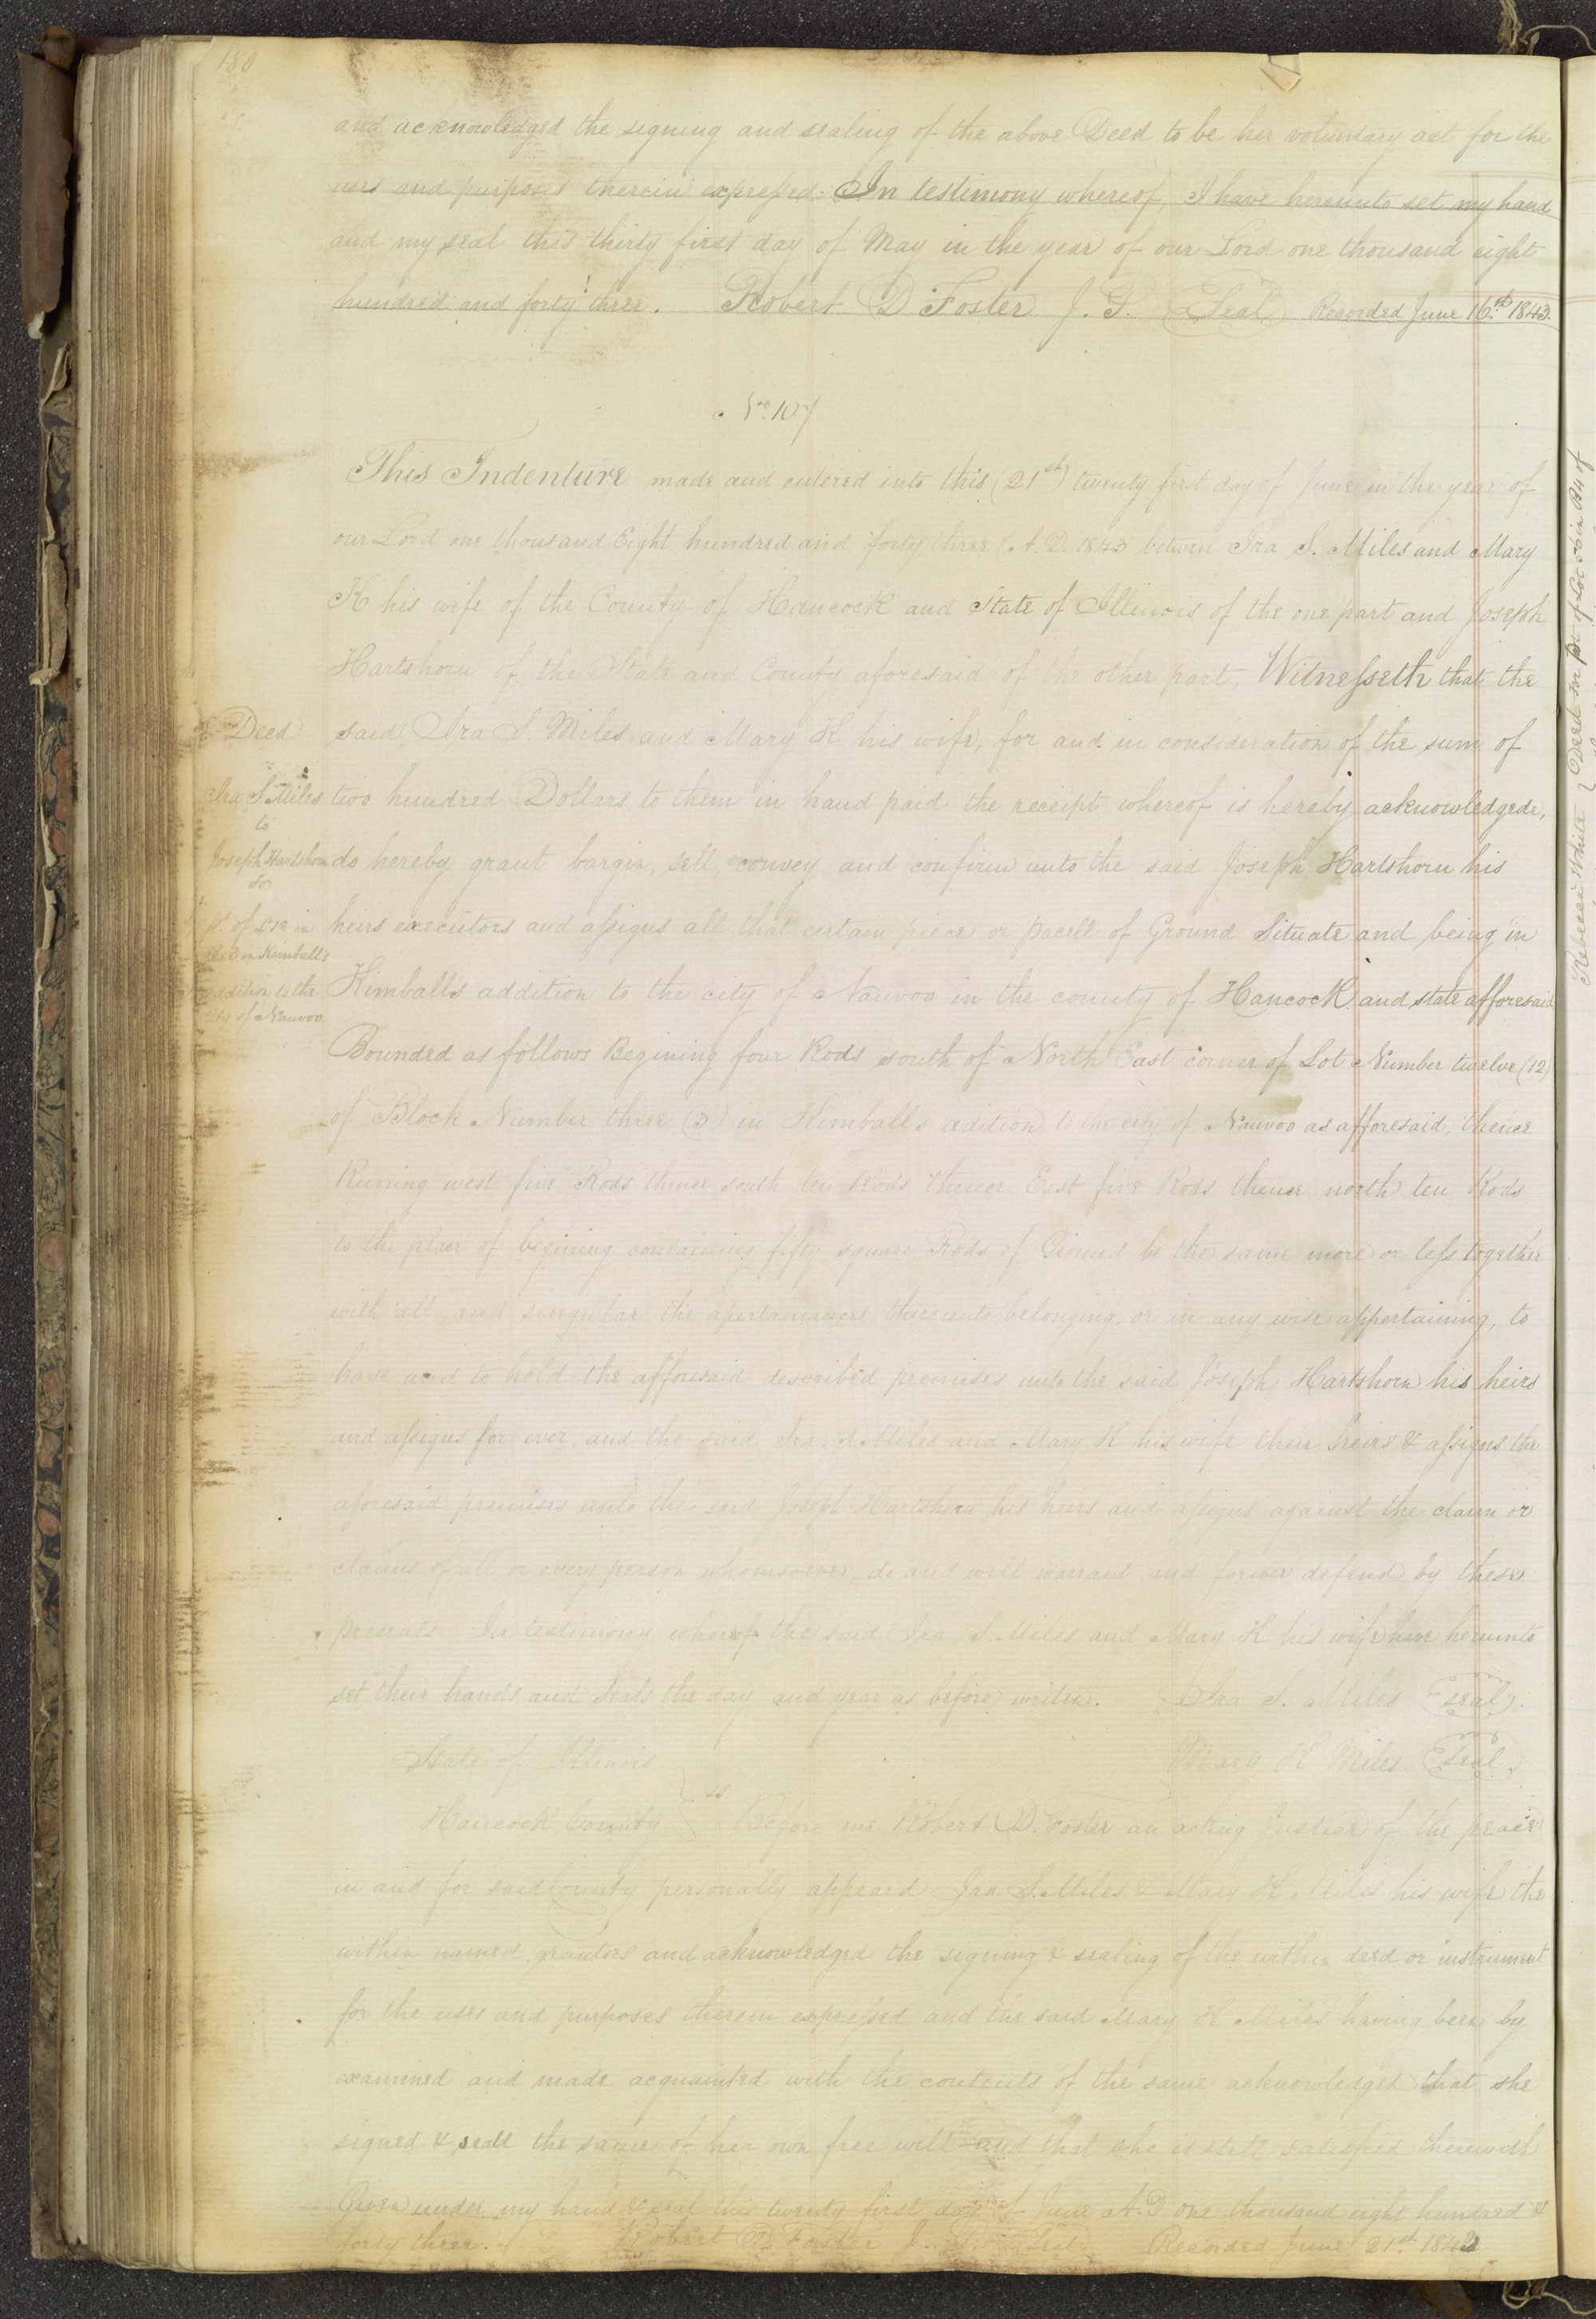 180
and acknowledged the signing and sealing of the above Deed to be her voluntary act for the
uses and purposes therein expressed. In testimony whereof, I have hereunto set my hand
and my seal this thirty first day of May in the year of our Lord one thousand eight
hundred and forty three. Robert D Foster J. P. Seal Recorded June 16th 1843.
No. 107
This Indenture made and entered into this (21st) twenty first day of June in the year of
our Lord one thousand Eight hundred and forty three (A. D. 1843 betwen Ira S. Miles and Mary
K his wife of the County of Hancock and State of Illinois of the one part and Joseph
Hartshorn of the State and County aforesaid of the other part, Witnesseth that the
Deed said Ira S. Miles and Mary K his wife, for and in consideration of the sum of
Ira S. Miles two hundred Dollars to them in hand paid the receipt whereof is hereby acknowledgede,
to
Joseph Hartshorn do hereby grant bargin, sell convey and confirm unto the said Joseph Hartshorn his
for
of L 12 in heirs executors and assigns all that certain piece or pacell of Ground Situate and being in
in Kimballs
addition to the Kimball's addition to the city of Nauvoo in the county of Hancock and state afforesaid
City of Nauvoo
Bounded as follows Begining four Rods south of North East corner of Lot Number twelve (12)
of Block Number three (3) in Kimball's adition to the city of Nauvoo as afforesaid, thence
Runing west five Rods thence south ten Rods thence East five Rods thence north ten Rods
to the place of begining containing fifty square Rods of Ground be the same more or less together
with all and singular the apertainances thereunto belonging, or in any wise appertaining, to
have and to hold the afforesaid described premises unto the said Joseph Hartshorn his heirs
and assigns for ever, and the said Ira S. Miles and Mary K his wife their heirs & assigns the
aforesaid premises unto the said Joseph Hartshorn his heirs and assigns against the claim or
claims of all or every person whomsoever, do and will warrant and forever defend by these
presents In testimony whereof the said Ira S. Miles and Mary K his wife have hereunto
set their hands and seals the day and year as before writen. Ira S. Miles seal
State of Illinois Mary K Miles Seal
Hancock County } ss Before me Robert D. Foster an acting Justice of the peace
in and for said County personally appeard Ira S. Miles & Mary K Miles his wife the
within named grantors and acknowledged the signing & sealing of the within deed or instrument
for the uses and purposes therein expressed and the said Mary K Miles having been by
examined and made acquainted with the contents of the same acknowledged that she
signed & seald the same of her own free will and that she is still satisfied therewith
Given under my hand & seal this twenty first day of June A. D one thousand eight hundred &
forty three. Robert D. Foster J. P. Seal Recorded June 21st 1843
Rebecca White Deed for pt of Lot in B4 of